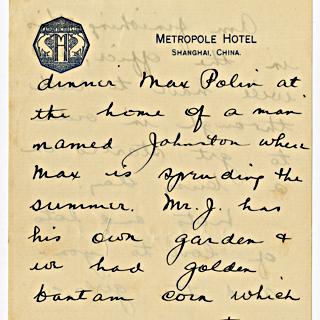 METROPOLE HOTEL
SHANGHAI, CHINA.
dinner Max Polin at
the home of a man
named Johnston where
Max is spending the
summer. Mr. J. has
his own garden &
we had golden
bantam corn which